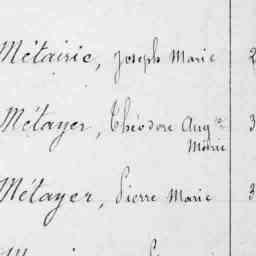 Métairie, Joseph Marie 2
Métayer, Théodore Aug.te 3
Marie
Métayer, Pierre Marie 3